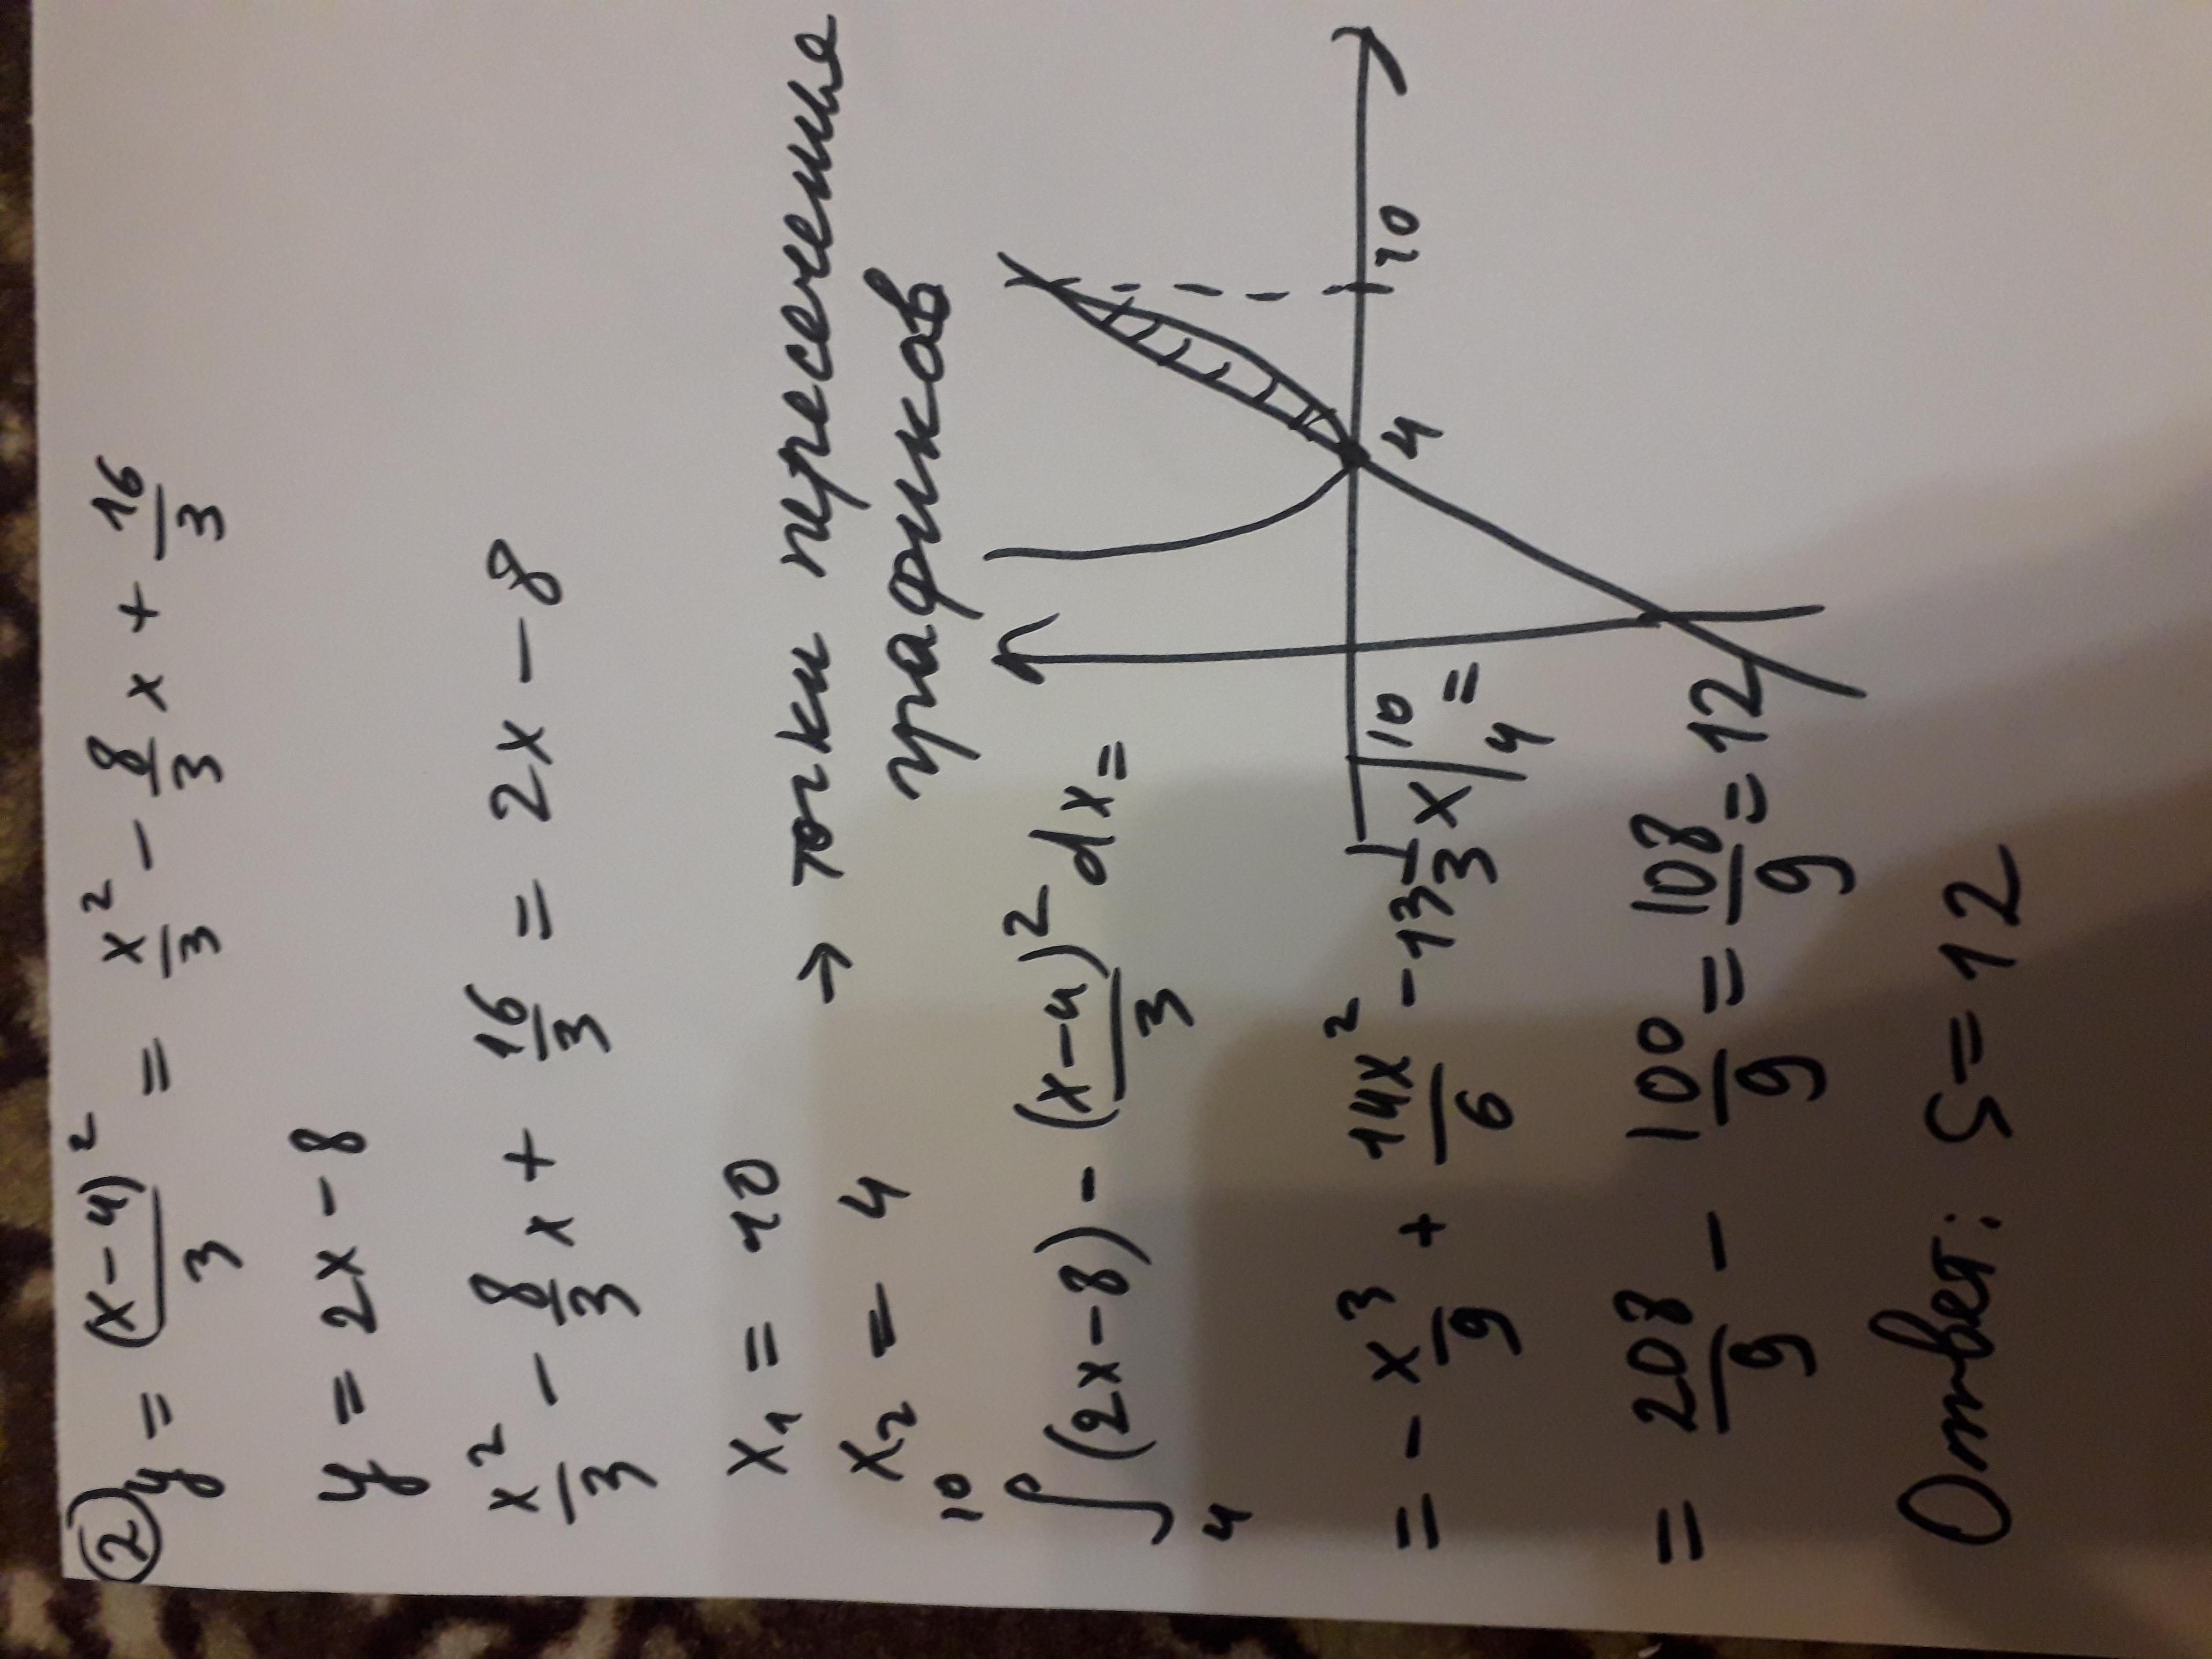 ② y = (x-4)²/3 = x²/3 - 8/3 x + 16/3
y = 2x - 8
x²/3 - 8/3 x + 16/3 = 2x - 8
x₁ = 10
x₂ = 4 → точки пересечение
графиков
∫₄¹⁰ (2x-8) - (x-4)²/3 dx =
= - x³/9 + 14x²/6 - 13 1/3 x |₄¹⁰ =
= 208/9 - 100/9 = 108/9 = 12
Ответ: S = 12
4
10